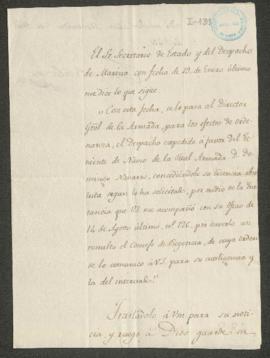 I-131
El Sr. Secretario de Estado y del Despacho
de Marina con fecha de 19 de Enero último
me dice lo que sigue.
"Con esta fecha, paso al Director
Gral de la Armada, para los efectos de orde-
nanza, el Despacho expedido a favor del Te-
niente de Navio de la Real Armada D. Do-
mingo Navarro, concediéndole su licencia abso-
luta segun lo ha solicitado, por medio de la ins-
tancia que VE me acompañó con su oficio de
14 de Agosto último, nº 126, por haverlo así
resuelto el Consejo de Regencia, de cuya orden
se lo comunico á V.S. para su inteligencia y
la del interesado."
Trasládolo á Vm para su no-
ticia, y ruego á Dios guarde su